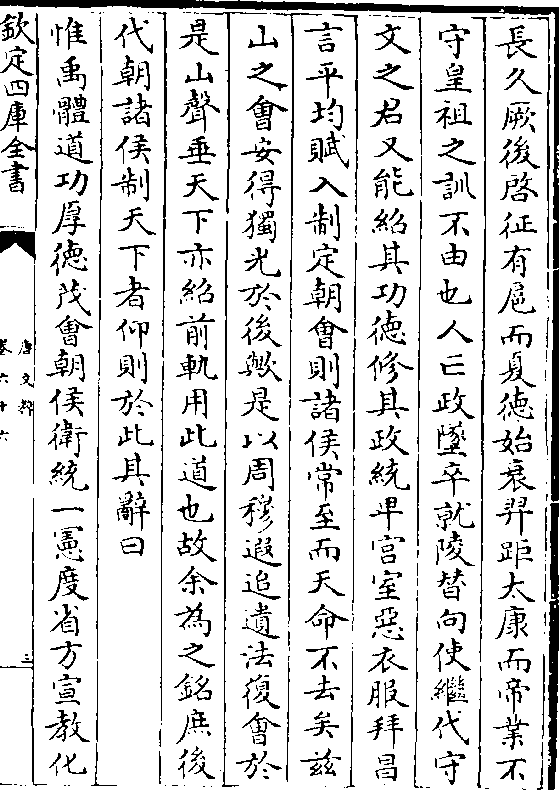 長久厥後啓征有扈而夏德始衰羿距太康而帝業不
守皇祖之訓不由也人亡政墜卒就陵替向使繼代守
文之君又能紹其功德修其政統卑宮室惡衣服拜昌
言平均賦入制定朝會則諸侯常至而天命不去矣兹
山之會安得獨光於後歟是以周穆遐追遺法復會於
是山聲垂天下亦紹前軌用此道也故余為之銘庶後
代朝諸侯制天下者仰則於此其辭曰
惟禹體道功厚德茂會朝侯衛統一憲度省方宣教化
欽定四庫全書
唐文粹
卷六十六
三